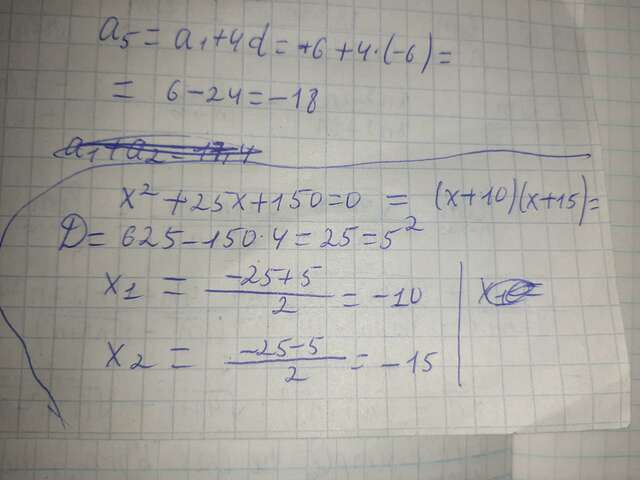 a₅ = a₁ + 4d = +6 + 4·(-6) =
= 6 - 24 = -18
a₁ + a₂ = 17,4
x² + 25x + 150 = 0 = (x+10)(x+15) =
D = 625 - 150·4 = 25 = 5²
x₁ = (-25+5)/2 = -10
x₂ = (-25-5)/2 = -15